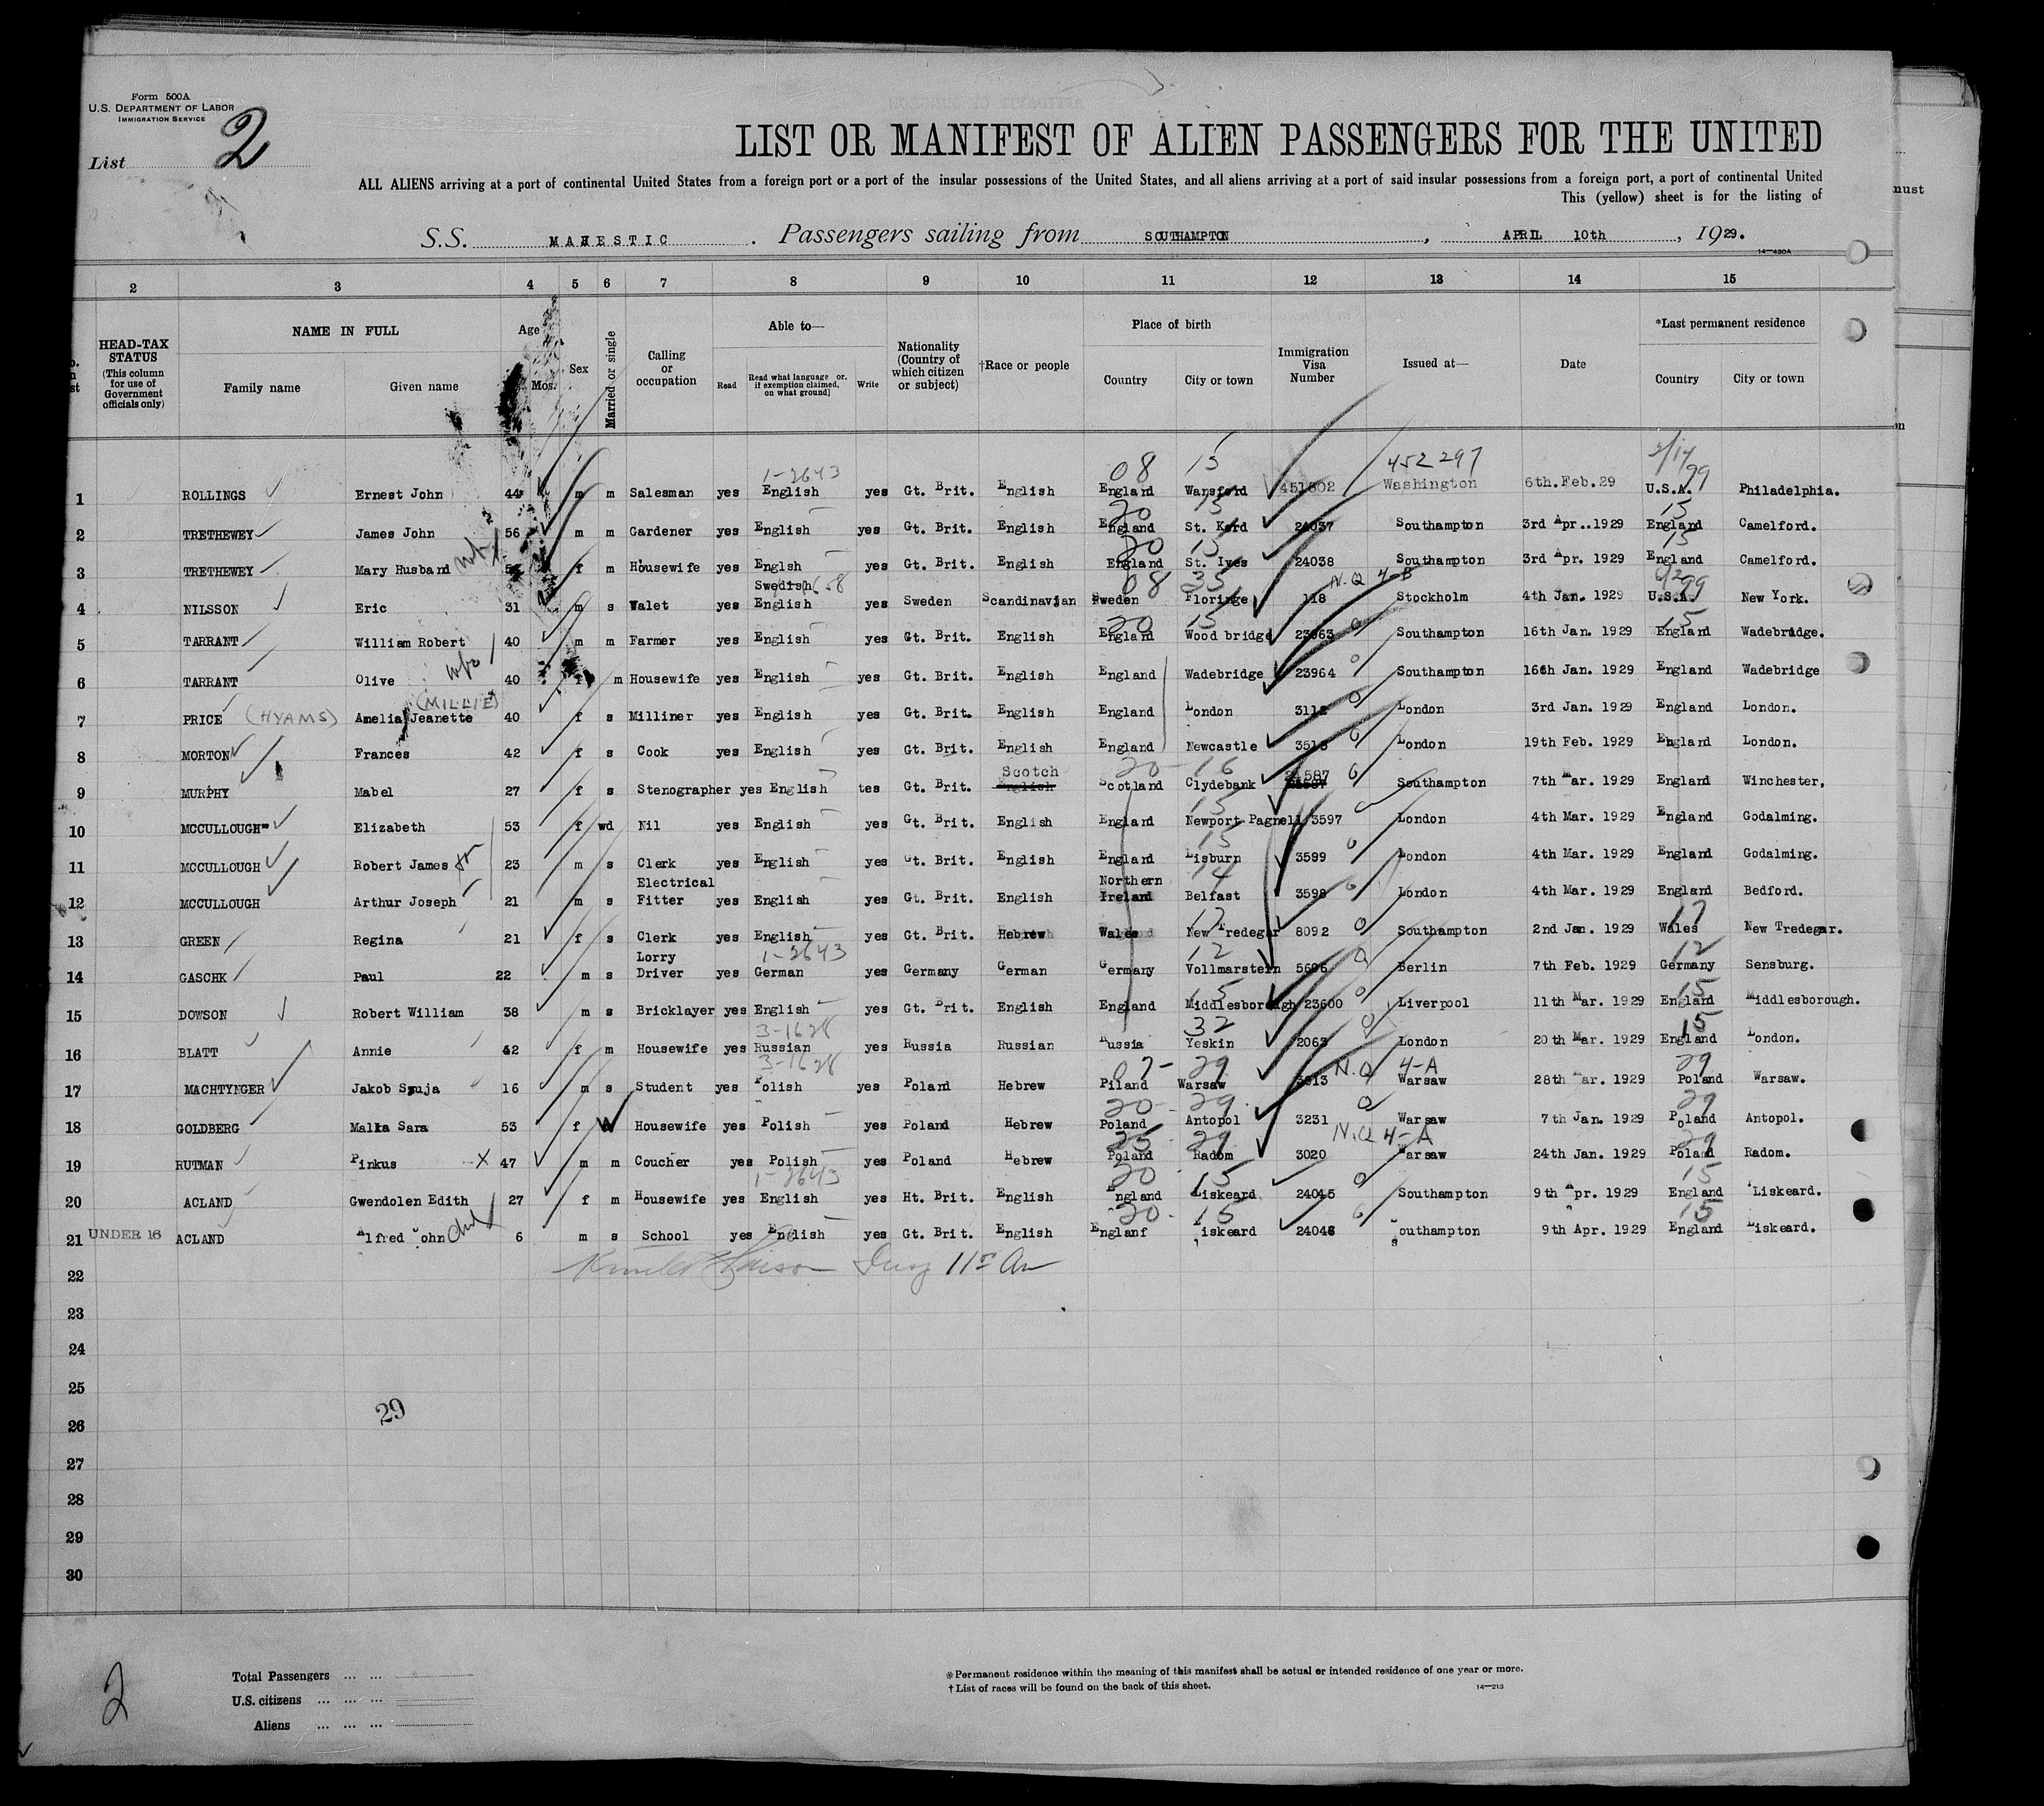 Form 500A
U.S. DEPARTMENT OF LABOR
IMMIGRATION SERVICE
List 2
LIST OR MANIFEST OF ALIEN PASSENGERS FOR THE UNITED
ALL ALIENS arriving at a port of continental United States from a foreign port or a port of the insular possessions of the United States, and all aliens arriving at a port of said insular possessions from a foreign port, a port of continental United
This (yellow) sheet is for the listing of
must
S.S. MAJESTIC. Passengers sailing from SOUTHAMPTON, APRIL 10th, 1929.
14—430A
2 3 4 5 6 7 8 9 10 11 12 13 14 15
HEAD-TAX STATUS (This column for use of Government officials only)
NAME IN FULL Family name Given name
Age Mos.
Sex
Married or single
Calling or occupation
Able to— Read Read what language or, if exemption claimed, on what ground] Write
Nationality (Country of which citizen or subject)
†Race or people
Place of birth Country City or town
Immigration Visa Number
Issued at—
Date
*Last permanent residence Country City or town
1-2643 08 15 452297 2/14 99
1 ROLLINGS Ernest John 44 m m Salesman yes English yes Gt. Brit. English England Wansford 451802 Washington 6th.Feb.29 U.S.A. Philadelphia.
20 15 15
2 TRETHEWEY James John 56 m m Gardener yes English yes Gt. Brit. English England St. 24037 Southampton 3rd Apr..1929 England Camelford.
20 15 15
3 TRETHEWEY Mary Husband f m Housewife yes Englsh yes Gt. Brit. English England St. Ives 24038 Southampton 3rd Apr. 1929 England Camelford.
Swedish 658 08 35 N.Q 4-B 99
4 NILSSON Eric 31 m s Valet yes English yes Sweden Scandinavian Sweden Floringe 118 Stockholm 4th Jan. 1929 U.S.A. New York.
20 15 15
5 TARRANT William Robert 40 m m Farmer yes English yes Gt. Brit. English England Wood bridge 23963 Southampton 16th Jan. 1929 England Wadebridge.
6 TARRANT Olive 40 f m Housewife yes English yes Gt. Brit. English England Wadebridge 23964 Southampton 16th Jan. 1929 England Wadebridge
(MILLIE)
7 PRICE (HYAMS) Amelia Jeanette 40 f s Milliner yes English yes Gt. Brit. English England London 3112 London 3rd Jan. 1929 England London.
8 MORTON Frances 42 f s Cook yes English yes Gt. Brit. English England Newcastle 3515 London 19th Feb. 1929 England London.
Scotch 20-16 24587
9 MURPHY Mabel 27 f s Stenographer yes English tes Gt. Brit. English Scotland Clydebank Southampton 7th Mar. 1929 England Winchester,
15
10 MCCULLOUGH Elizabeth 53 f wd Nil yes English yes Gt. Brit. English England Newport Pagnell 3597 London 4th Mar. 1929 England Godalming.
15
11 MCCULLOUGH Robert James 23 m s Clerk yes English yes Gt. Brit. English England Lisburn 3599 London 4th Mar. 1929 England Godalming.
14
12 MCCULLOUGH Arthur Joseph 21 m s Electrical Fitter yes English yes Gt. Brit. English Northern Ireland Belfast 3598 London 4th Mar. 1929 England Bedford.
17 17
13 GREEN Regina 21 f s Clerk yes English yes Gt. Brit. Hebrew Wales New Tredegar 8092 Southampton 2nd Jan. 1929 Wales New Tredegar.
1-2643 12 12
14 GASCHK Paul 22 m s Lorry Driver yes German yes Germany German Germany Vollmarstein 5696 Berlin 7th Feb. 1929 Germany Sensburg.
15 15
15 DOWSON Robert William 38 m s Bricklayer yes English yes Gt. Brit. English England Middlesborough 23600 Liverpool 11th Mar. 1929 England Middlesborough.
3-1628 32 15
16 BLATT Annie 42 f m Housewife yes Russian yes Russia Russian Russia Yeskin 2063 London 20th Mar. 1929 England London.
3-1628 07-29 N.Q 4-A 29
17 MACHTYNGER Jakob Szuja 16 m s Student yes Polish yes Poland Hebrew Piland Warsaw 3613 Warsaw 28th Mar. 1929 Poland Warsaw.
20-29 29
18 GOLDBERG Malka Sara 53 f Housewife yes Polish yes Poland Hebrew Poland Antopol 3231 Warsaw 7th Jan. 1929 Poland Antopol.
25-29 N.Q 4-A 29
19 RUTMAN Pinkus X 47 m m Coucher yes Polish yes Poland Hebrew Poland Radom 3020 Warsaw 24th Jan. 1929 Poland Radom.
1-2643 20 15 15
20 ACLAND Gwendolen Edith 27 f m Housewife yes English yes Ht. Brit. English England Liskeard 24045 Southampton 9th Apr. 1929 England Liskeard.
20 15 15
21 UNDER 16 ACLAND Alfred John 6 m s School yes English yes Gt. Brit. English Englanf Liskeard 24046 Southampton 9th Apr. 1929 England Liskeard.
22
23
24
25
29
26
27
28
29
30
2
Total Passengers ... ...
U.S. citizens ... ... ...
Aliens ... ... ...
*Permanent residence within the meaning of this manifest shall be actual or intended residence of one year or more.
†List of races will be found on the back of this sheet.
14—213